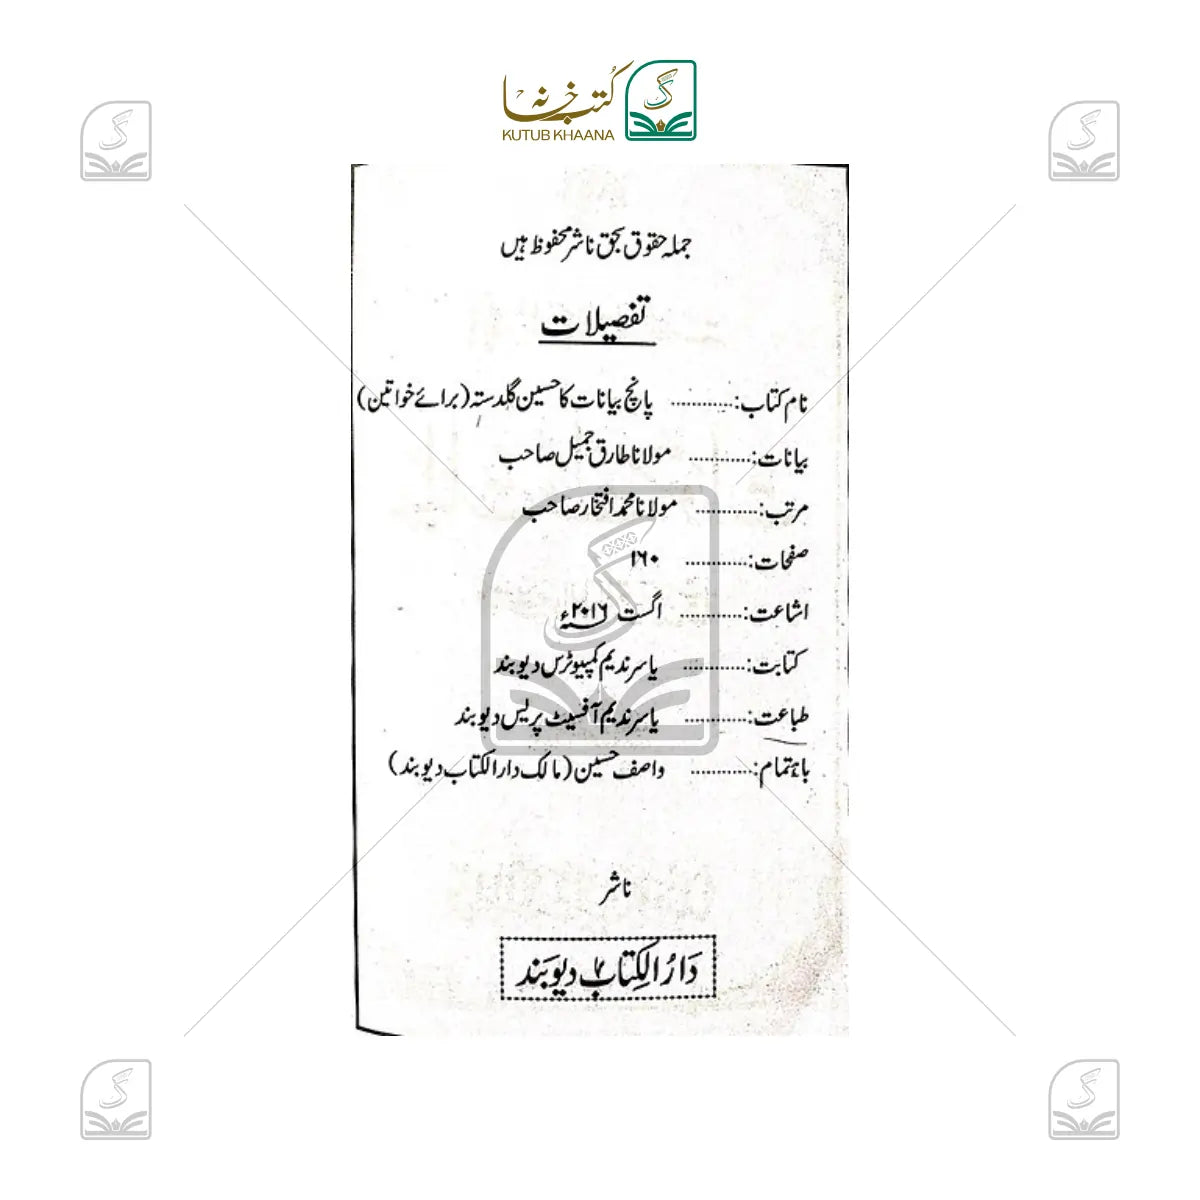 کتب خانہ
KUTUB KHAANA
جملہ حقوق بحق ناشر محفوظ ہیں
تفصیلات
نام کتاب:............ پانچ بیانات کا حسین گلدستہ (برائے خواتین)
بیانات:............ مولانا طارق جمیل صاحب
مرتب:............ مولانا محمد افتخار صاحب
صفحات:............ ۱۶۰
اشاعت:............ اگست ۲۰۱۶ء
کتابت:............ یاسر ندیم کمپیوٹرس دیوبند
طباعت:............ یاسر ندیم آفسیٹ پریس دیوبند
باہتمام:............ واصف حسین (مالک دارالکتاب دیوبند)
ناشر
دَارُ الکِتَاب دیوبَند